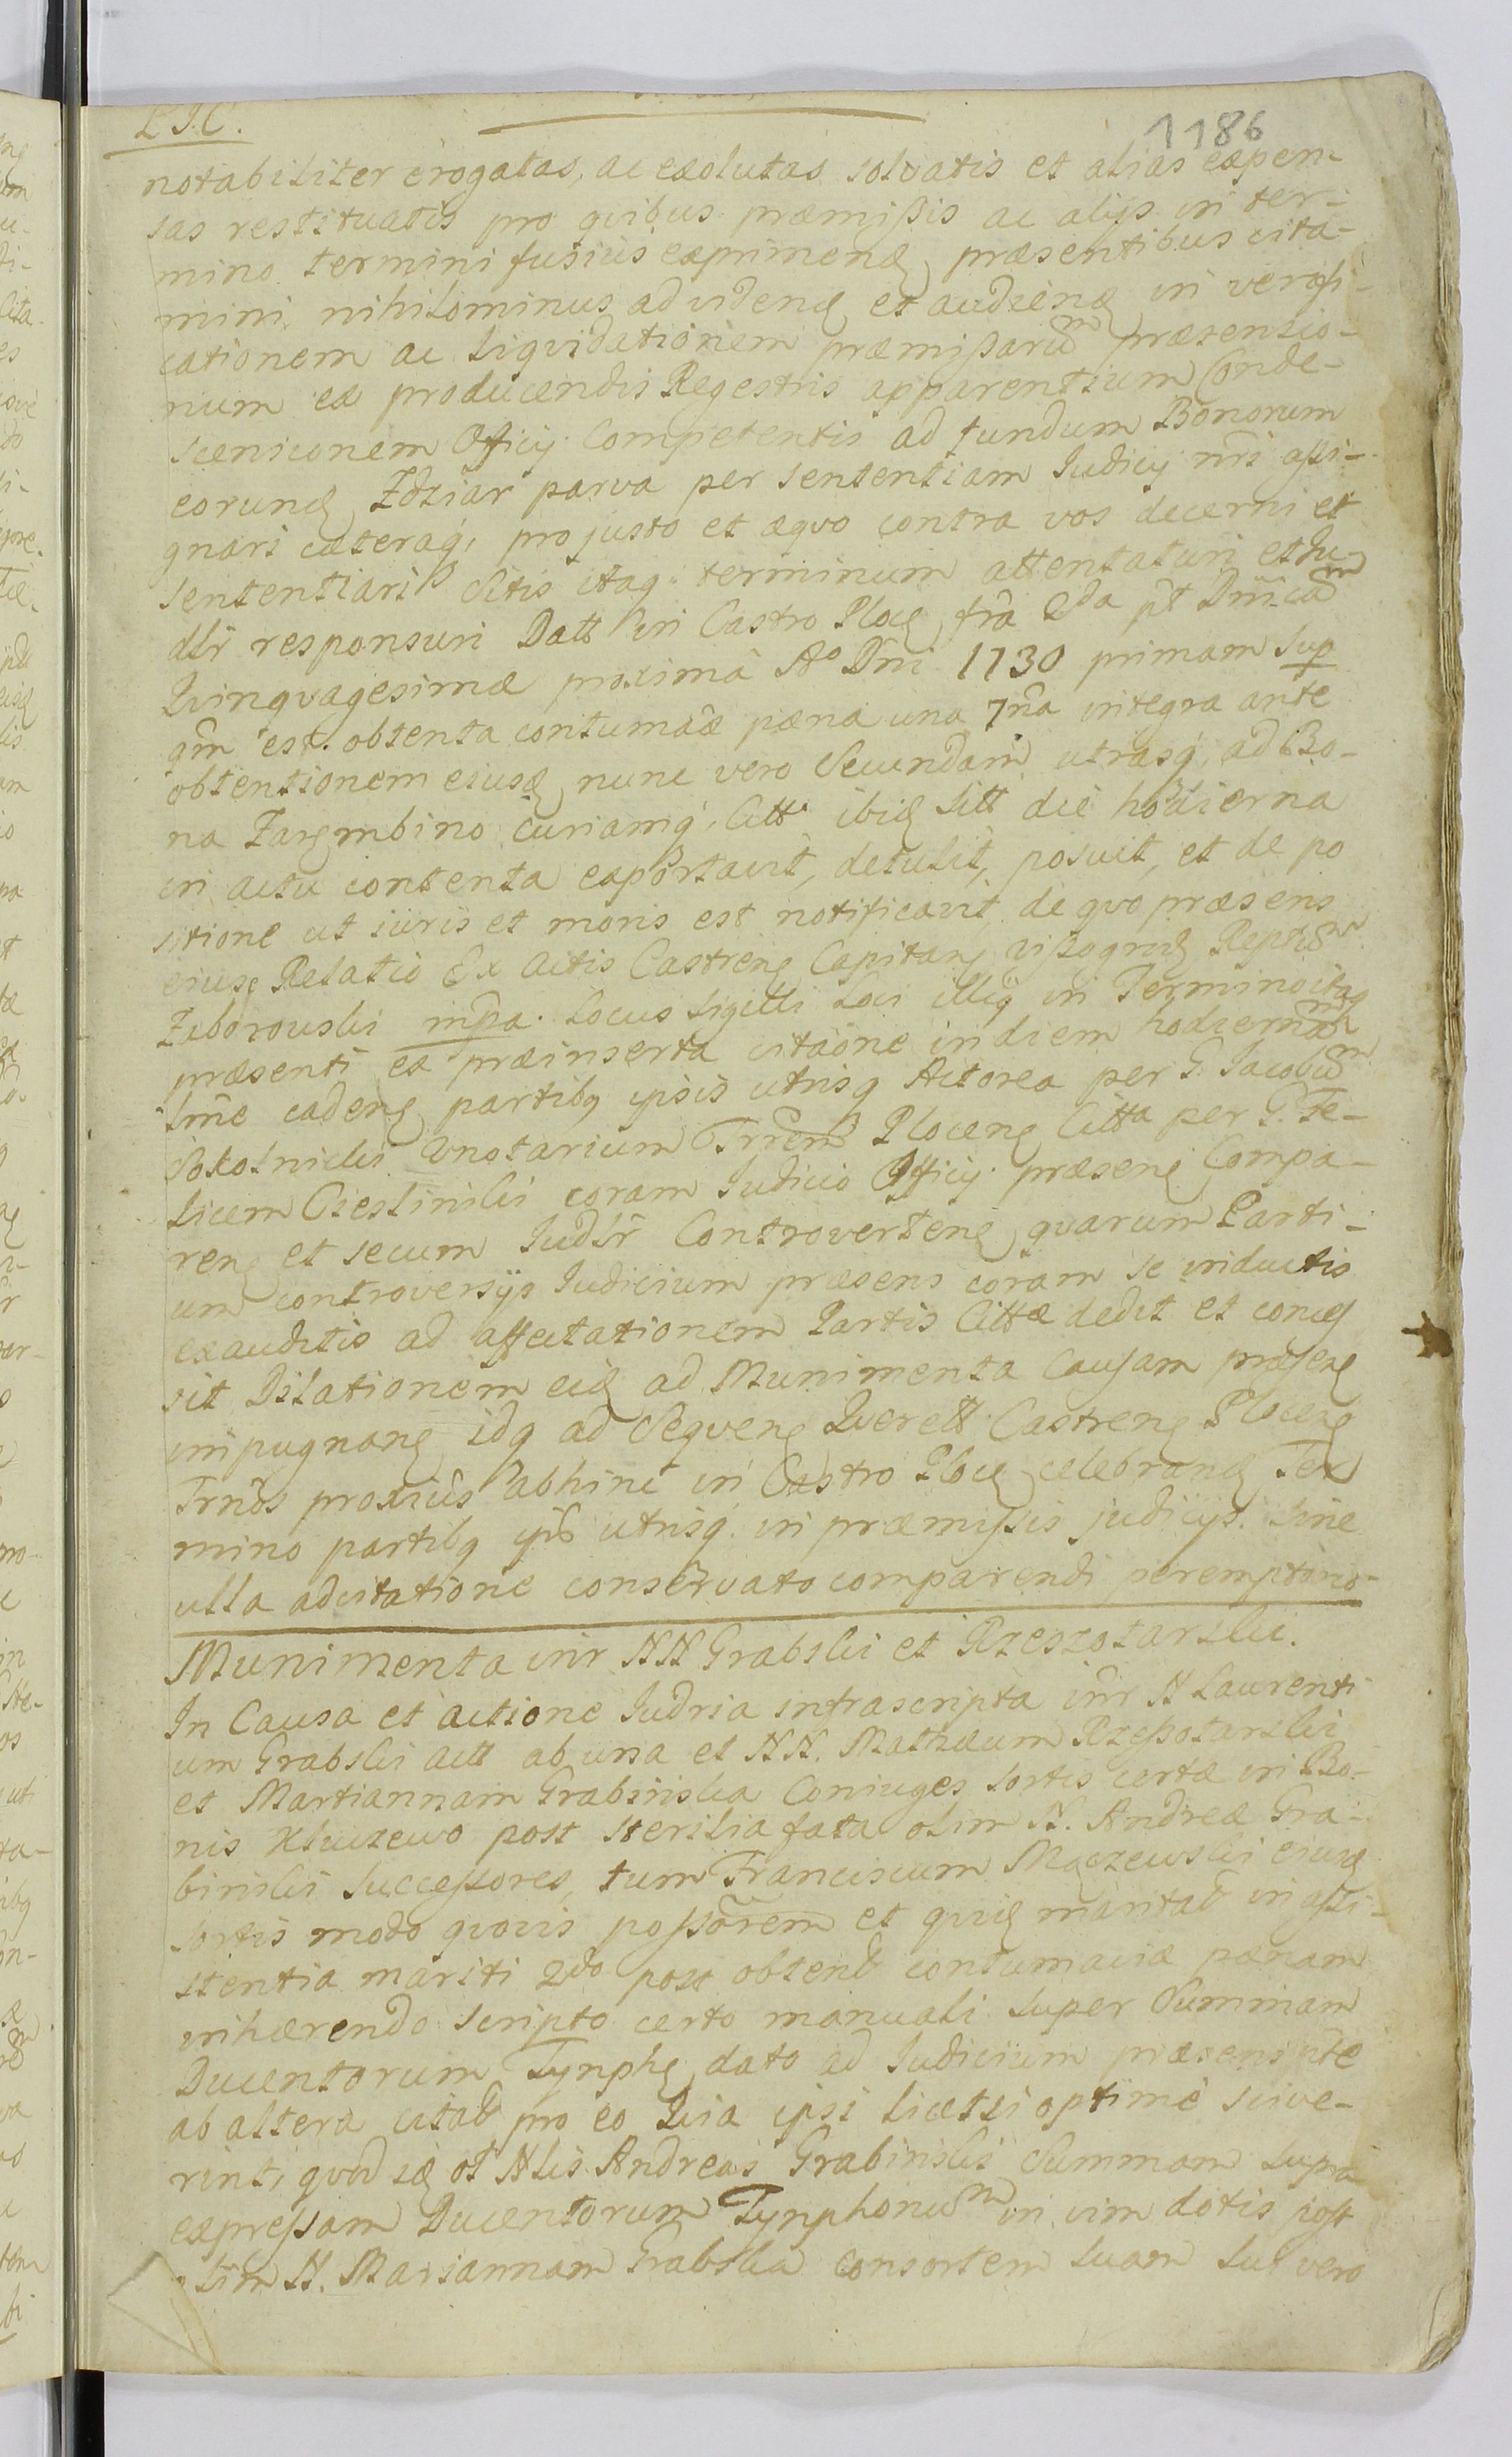 L J. C.
1186
notabiliter erogatas, ac exolutas solvatis et alias expen-
sas restituatis pro quibus præmißis ac alijs in ter-
mino termini fusius exprimend præsentibus cita-
mini, nihilominus ad vidend et audiend in verifi-
cationem ac liquidationem præmißarum prætensio-
num ex producendis Regestris apparentium Conde-
scensionem Officij Competentis ad fundum Bonorum
eorund Zdziar parva per sententiam Judicij nri assi-
gnari cæteraq, pro justo et æquo contra vos decerni et
sententiari Sitis itaq terminum attentaturi et Ju-
dlr responsuri Datt in Castro Ploc fra 2da pt Dnicam
Quinquagesimæ proxima Ao Dni 1730 primam sup
qm est obtenta contumaciæ pæna una 7na integra ante
obtentionem eiusd nunc vero Secundam utrasq, ad Bo-
na Zarembino curiamq, Citt ibid sitt die hodierna
in actu contenta exportavit, detulit, posuit, et de po
sitione ut iuris et moris est notificavit de quo præsens
eius Relatio Ex Actis Castren Capitan Vißogrod Reptum
Zaborowski mpa. Locus Sigilli Loci illiq in Termino itaq
præsenti ex præinserta citaone in diem hodiernam
lme caden partibq ipsis utrisq Actorea per G. Jacobum
Sokolnicki Vnotarium Trrem Plocen Citta per G. Fe-
licem Ciesliński coram Judicio Officij præsen Compa-
ren et secum Judlr Controverten quarum Parti-
um controversijs Judicium præsens coram se inductis
exauditis ad affectationem Partis Cittæ dedit et conces
sit Dilationem eid ad Munimenta Causam præsen
inpugnan idq ad Sequen Querell Castren Plocen
Trnos proxius abhinc in Castro Ploc celebrand Ter
mino partibq ipis utrisq in præmissis judicijs sine
ulla adcitatione conservato comparendi peremptorio-
Munimenta inr NN Grabski et Rzeszotarski.
In Causa et actione Judria infrascripta inr N Laurenti
um Grabski Actt ab una et NN. Mathæum Rzeßotarski
et Martiannam Grabińska Coniuges sortis certæ in Bo-
nis Kluszewo post sterilia fata olim N. Andreæ Gra-
binski Successores, tum Franciscum Mączewski eiusd
sortis modo quovis possorem et quid maritat in assi-
stentia mariti 2do post obtent contumaciæ pænam
inhærendo scripto certo manuali super Summam
Ducentorum Tynph dato ad Judicium præsens pte
ab altera citat pro eo Quia ipsi licet si optimè scive-
rint, quod id ol Nlis Andreas Grabinski Summam supra
expressam Ducentorum Tynphonum in vim dotis post
olim N. Mariannam Grabska consortem suam sui vero